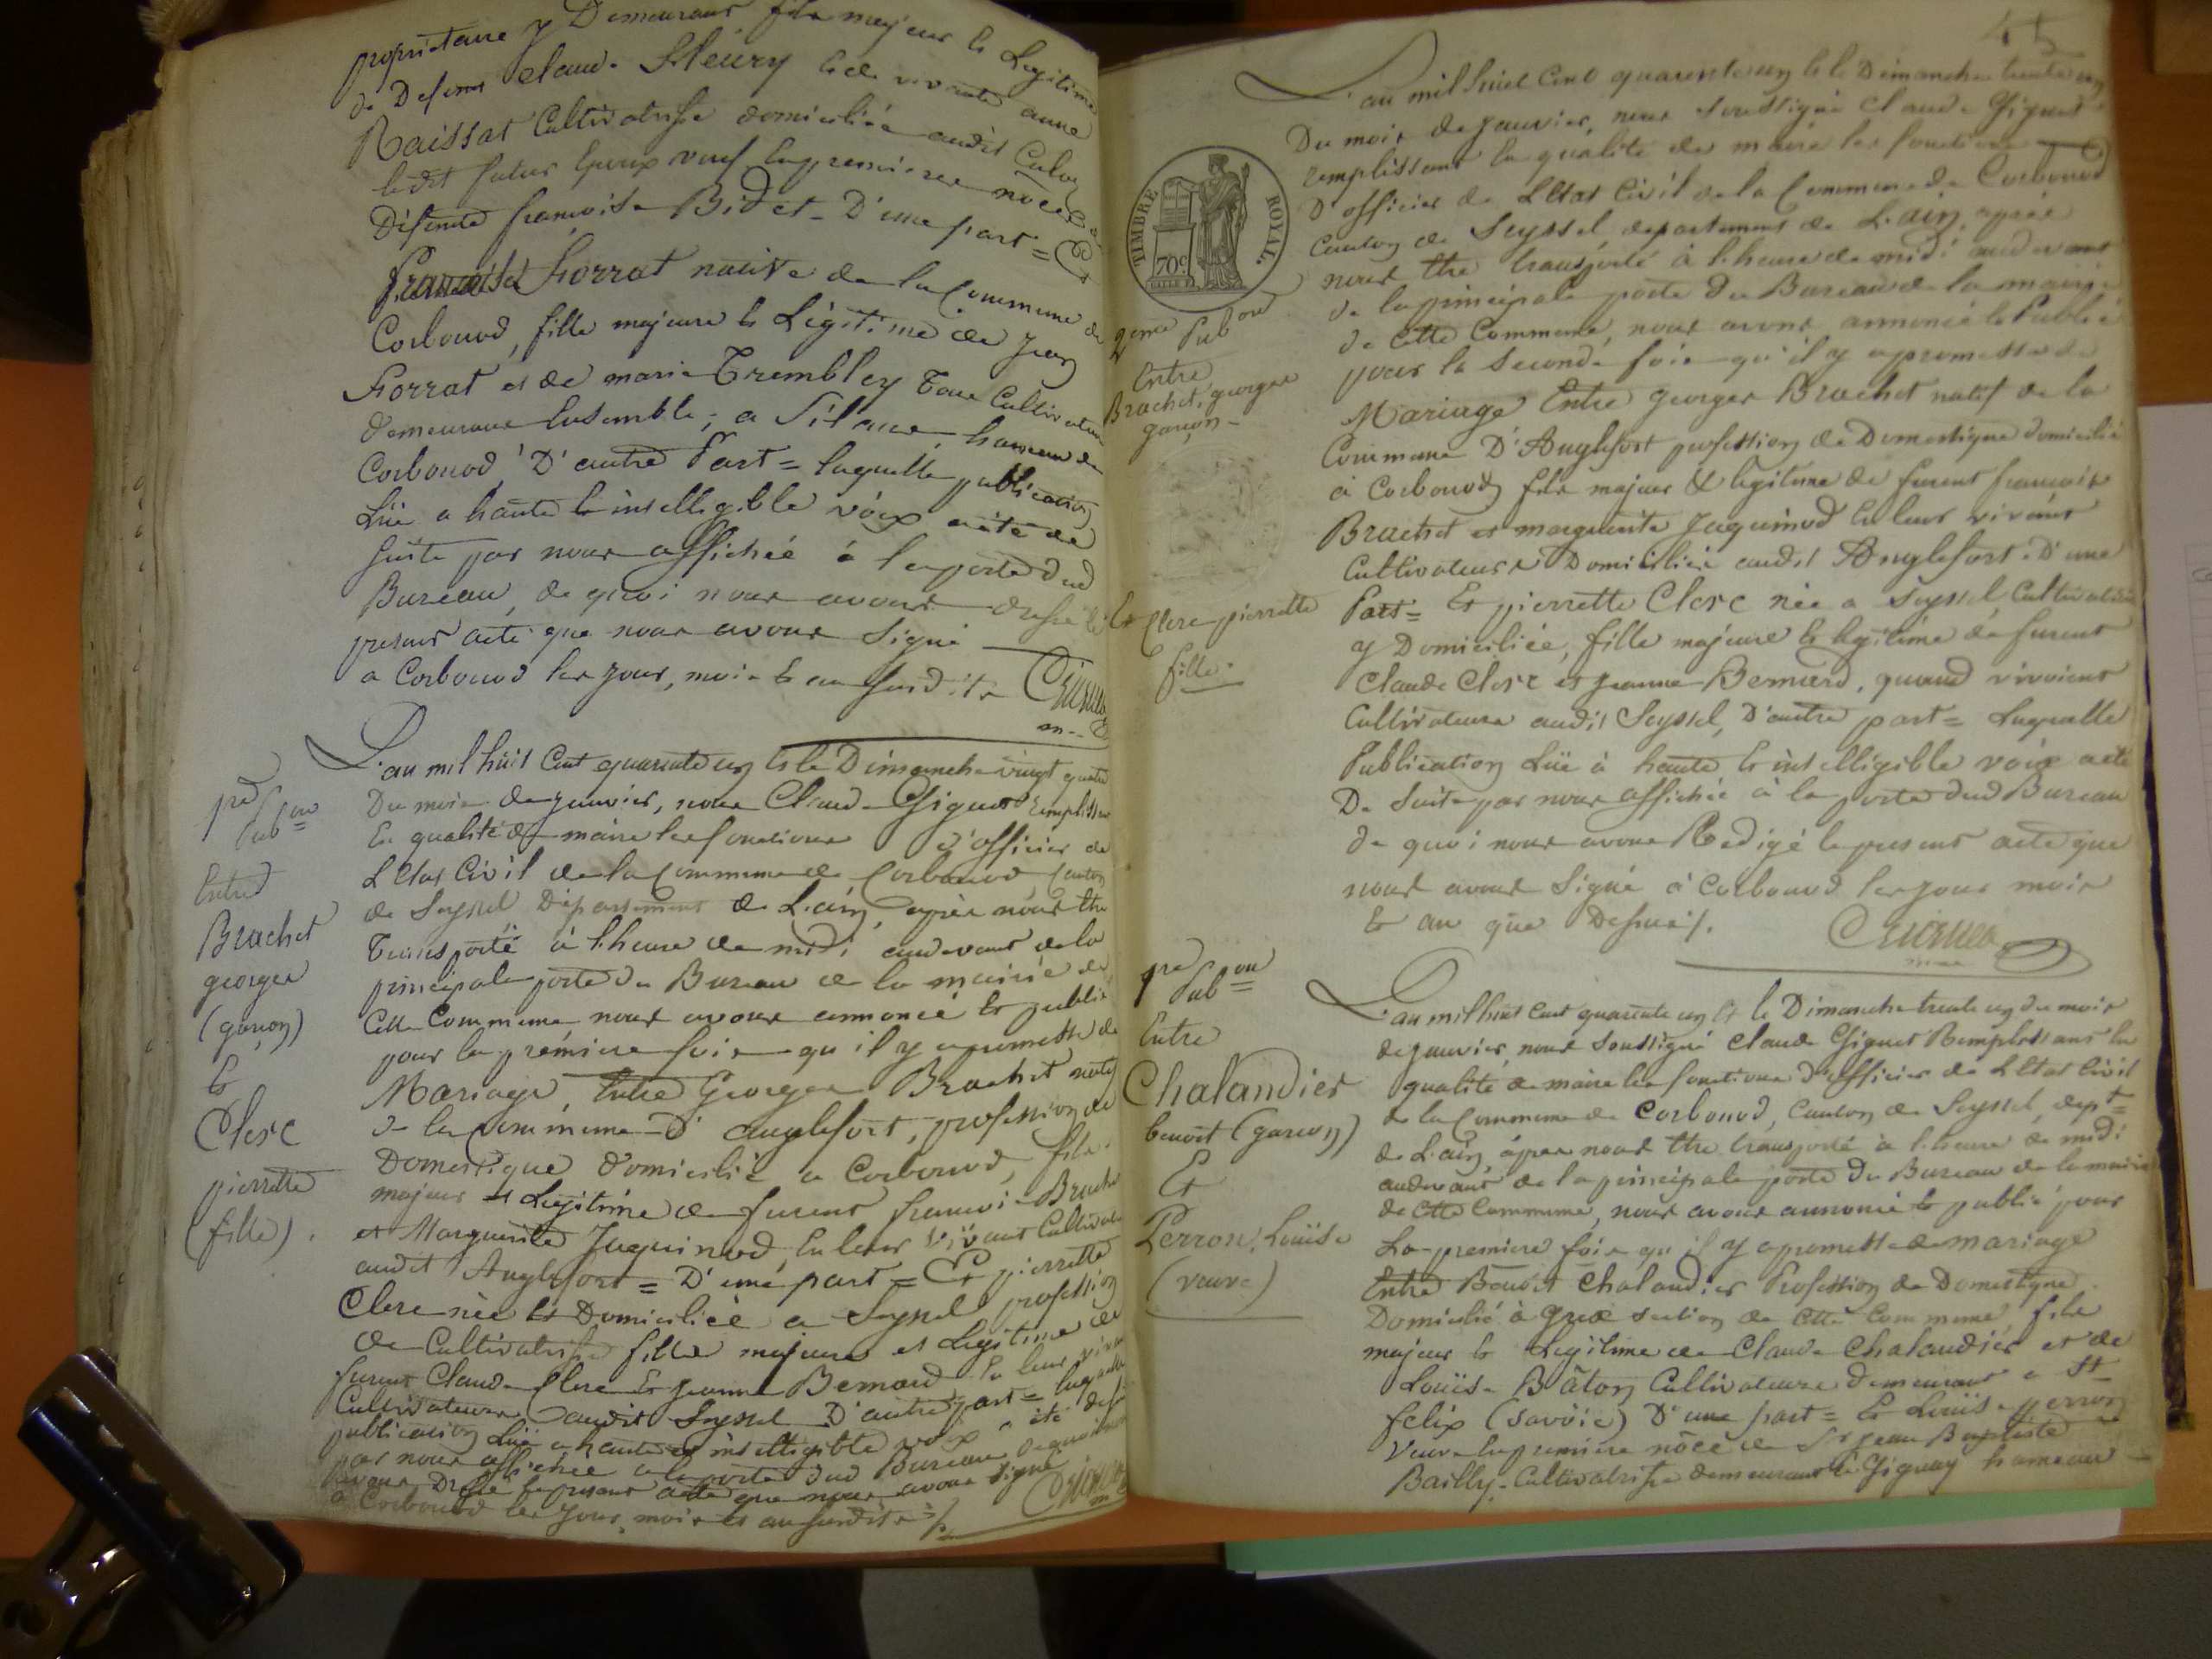 propriétaire y Demeurant fils majeur & Legitime
de Defunt Claude Fleury & de vivante anne
Raissat Cultivatrisse domiciliée audit Culoz
ledit futur Epoux veuf En premieres noces de
Défunte françoise Bidet - D'une part = Et
françoise Forrat native de la Commune de
Corbonod, fille majeure & Légitime de jean
Forrat et de marie Trembley Tous Cultivateurs
demeurant Ensemble, a Silans, hameau de
Corbonod, D'autre Part = laquelle publication
Lüe a haute & intelligible voix a été de
suite par nous affichée à la porte dud
Bureau, de quoi nous avons dressé le
present acte que nous avons Signé
a Corbonod les jour, mois & an susdits
Guigues
m..
pre Pub on =
Entre
Brachet
georges
(garçon)
&
Clerc
pierrette
(fille).
L'an mil huit Cent quarante un & le Dimanche vingt quatre
Du mois de janvier, nous Claude Giguet Remplissant
En qualité de maire les fonctions d'officier de
L'Etat Civil de la Commune de Corbonod, Canton
de Seyssel Département de L'ain, après nous être
Transporté à l'heure de midi audevant de la
principale porte du Bureau de la mairie de
Cette Commune, nous avons annoncé & publié
pour la prémiere fois qu'il y a promesse de
Mariage, Entre Georges Brachet natif
de la Commune D'anglefort, profession de
Domestique domicilié a Corbonod, fils
majeur et Legitime de furent francois Brachet
et Marguerite Jaquinod, En leur vivant Cultivateurs
audit Anglefort = D'une part = Et pierrette
Clerc née & Domiciliée a Seyssel profession
de Cultivatrisse fille majeure et Legitime de
furent Claude Clerc & jeanne Bernard En leur vivant
Cultivateurs audit Seyssel D'autre part = laquelle
publication Lüe a haute et intelligible voix a été de suite
par nous affichée a la porte dud Bureau de quoi nous
avons Dressé le present acte que nous avons signé
a Corbonod les jour, mois & an susdits /.
45
L'an mil huit Cent quarante un & le Dimanche trente un
Du mois de janvier, nous soussigné Claude Giguet
remplissant la qualité de maire les fonctions
D'officier de L'Etat Civil de la Commune de Corbonod
Canton de Seyssel departement de L'ain, après
nous être transporté à l'heure de midi audevant
de la principale porte du Bureau de la mairie
de Cette Commune, nous avons annoncé & Publié
pour la seconde fois qu'il y a promesse de
Mariage Entre georges Brachet natif de la
Commune D'Anglefort profession de Domestique domicilié
à Corbonod fils majeur & legitime de furent françois
Brachet et marguerite Jaquinod En leur vivant
Cultivateurs Domiciliés audit Anglefort D'une
Part = Et pierrette Clerc née a Seyssel Cultivatrisse
y Domiciliée, fille majeure & légitime de furent
Claude Clerc et jeanne Bernard, quand vivoient
Cultivateurs audit Seyssel, D'autre part = Laquelle
Publication Lüe à haute & intelligible voix a été
De suite par nous affichée à la porte dud Bureau
de quoi nous avons Redigé le present acte que
nous avons Signé à Corbonod les jour mois
& an que Dessus /.
TIMBRE ROYAL.
70c
2eme Pub on
Entre
Brachet, georges
garçon -
& Clerc pierrette
fille.
pre Pub on =
Entre
Chalandier
benoit (garçon)
Et
Perron, Louise
(veuve)
L'an mil huit Cent quarante un & le Dimanche trente un du mois
de janvier, nous soussigné Claude Giguet Remplissant la
qualité de maire les fonctions d'officier de L'Etat Civil
de la Commune de Corbonod, Canton de Seyssel, dept =
de L'ain, après nous être transporté à l'heure de midi
audevant de la principale porte du Bureau de la mairie
de Cette Commune, nous avons annoncé & publié pour
La premiere fois qu'il y a promesse de mariage
Entre Benoit Chalandier Profession de Domestique
Domicilié à Grex section de Cette Commune, fils
majeur & Legitime de Claude Chalandier et de
Louise Bâton Cultivateurs demeurant a St
felix (savoie) D'une part = & Louise perron
Veuve En premiere nôce de Sr jean Baptiste
Bailly Cultivatrisse demeurant à Gignay hameau